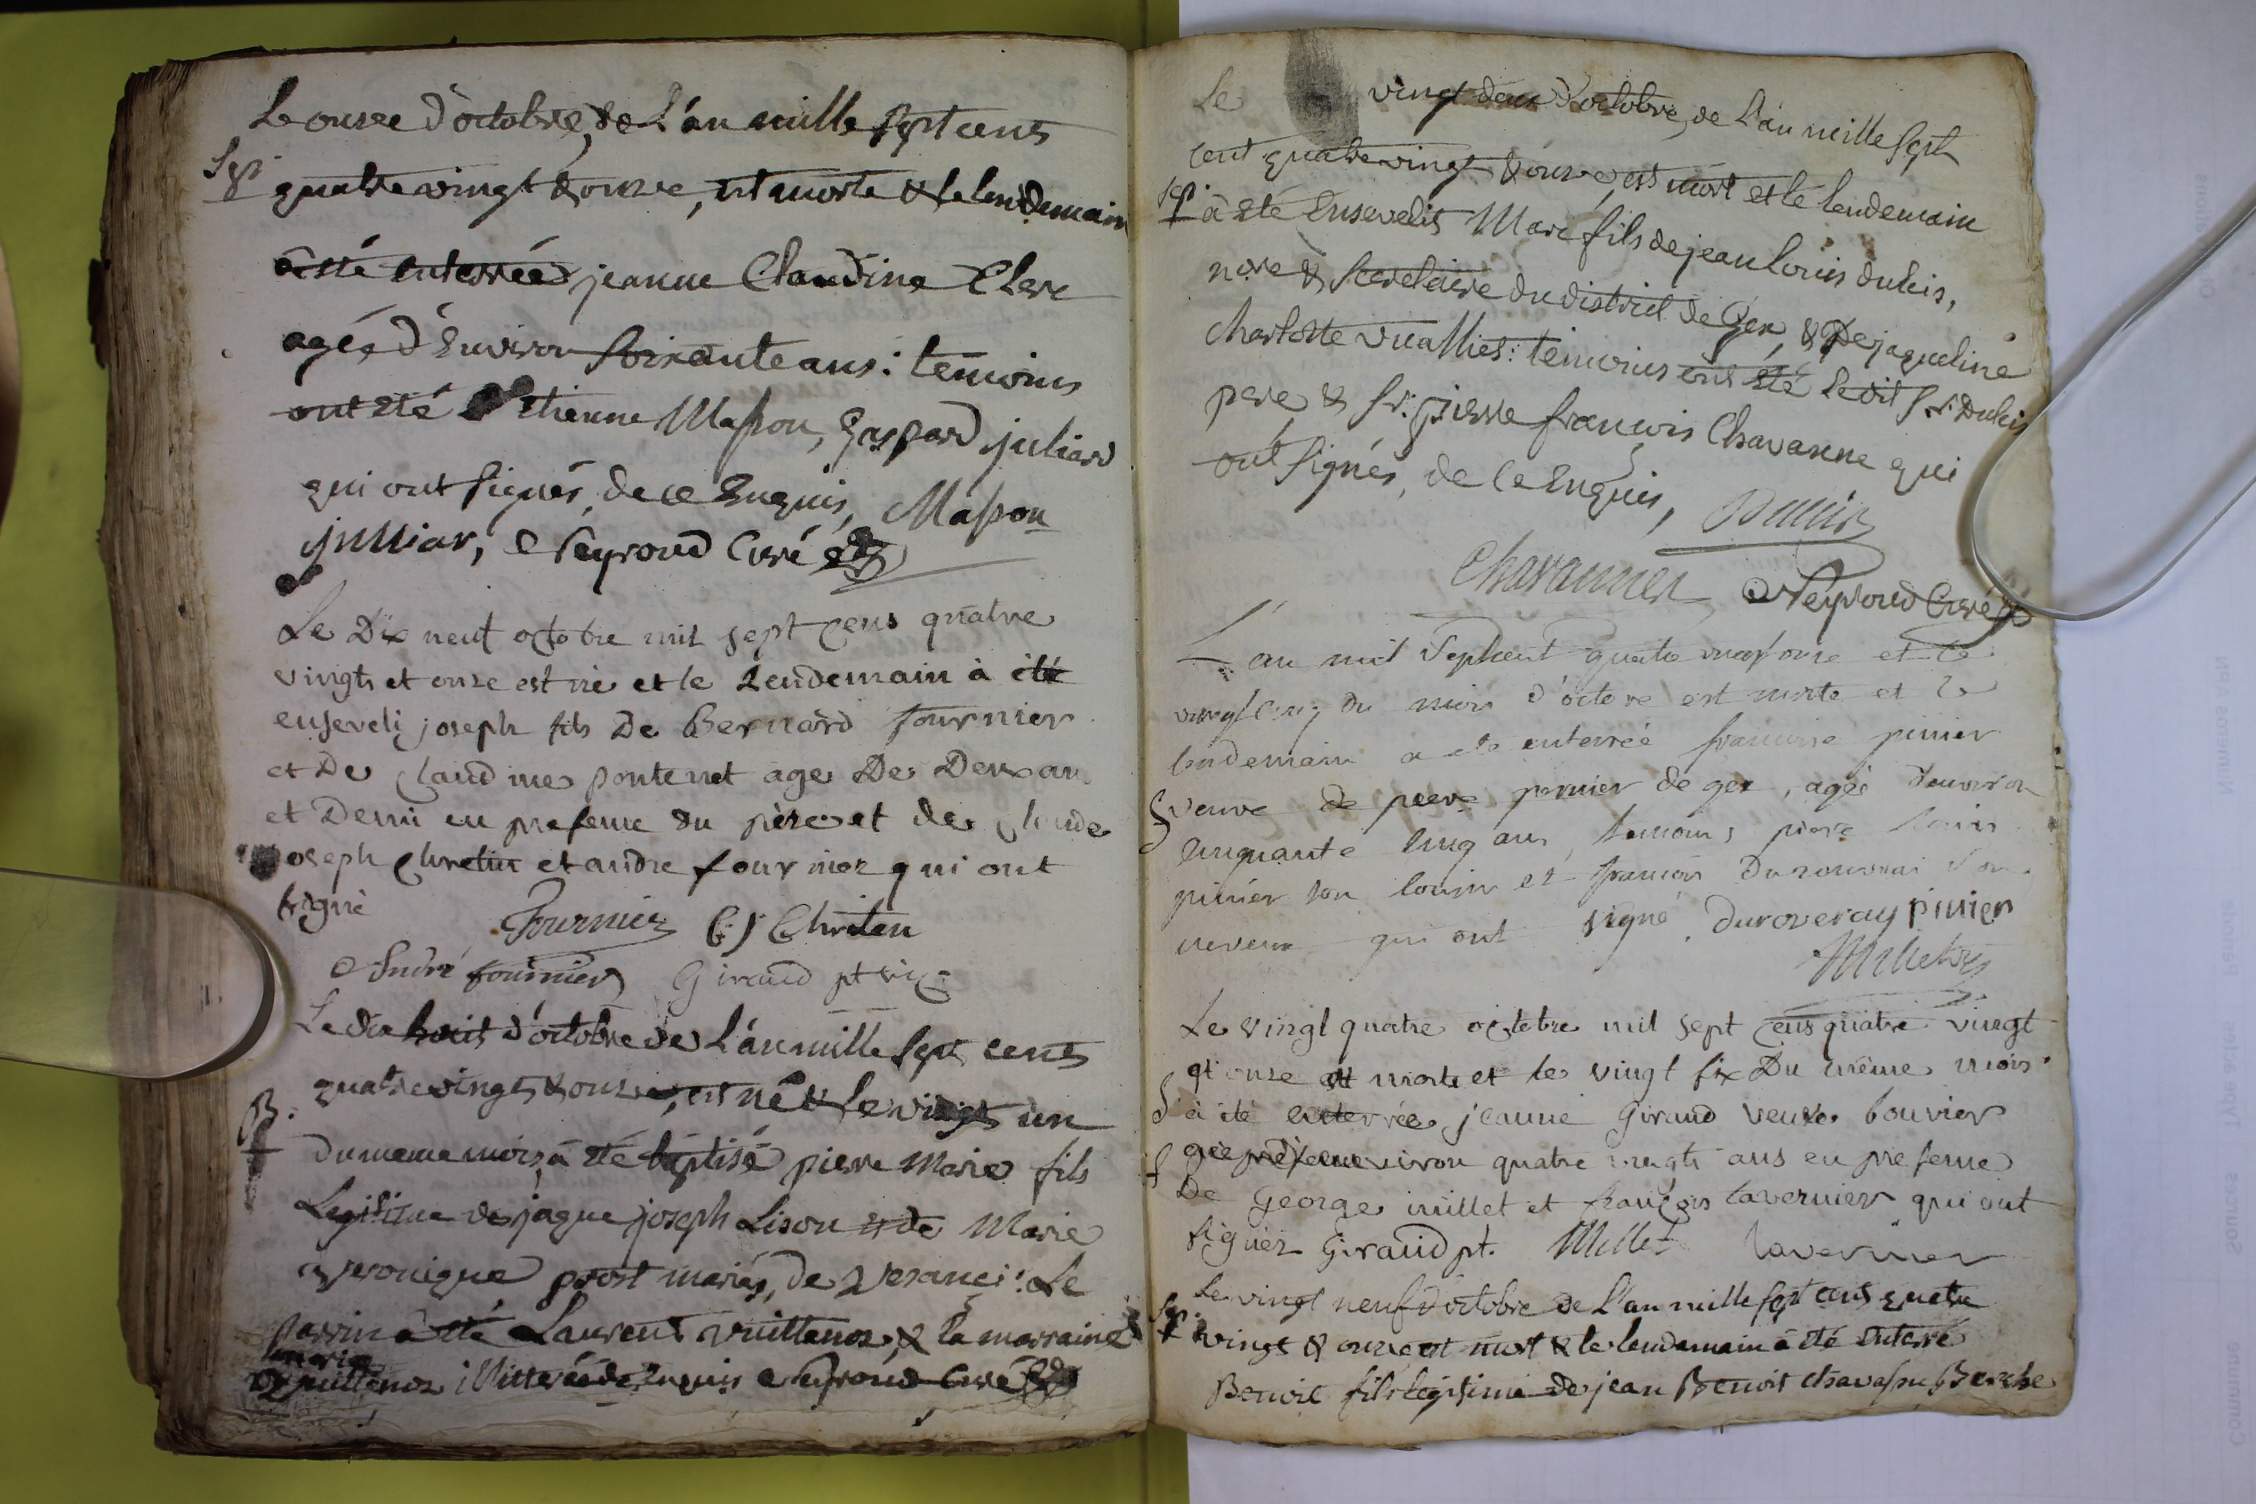 Le onzee d'octobre, de L'an mille sept cens
Sep.
quatre vingt & onze, est morte & le lendemain
à été enterrée jeanne Claudine Clerc
agée d'Environ soixante ans : temoins
ont été Etienne Masson, Gaspard juliard
qui ont signés, de ce Enquis, Masson
julliar, Neyroud Curé
Le Dix neuf octobre mil sept cens quatre
vingts et onze est né et le Lendemain à été
enseveli joseph fils De Bernard fournier
et De Claudine pontenet age De Deux an
et Demi en presence du père et de Claude
joseph Chretin et andre fournier qui ont
signé
Fournier C. j. Chriten
André fournier Giraud pt vic.
Le dix huit d'octobre de L'an mille sept cents
quatre vingts & onze, est né & le vingt un
B.
du meme mois, à été baptisé pierre Marie fils
Legitime de jaque joseph Lison & de Marie
veronique prost mariés, de Vesanci : Le
parrin à été Laurent vuillenoz, & la marraine
marie
vuillenoz illitterés de Enquis Neyroud Curé
Le vingt deux d'octobre, de L'an mille Sept
cent quatre vingt & onze, est mort et le lendemain
Sep.
à été Ensevelis Marc fils de jean louis duleis,
nore & Secretaire du district de Gex, & De jaqueline
Charlotte vuallies : temoins ont été Ledit Sr. Duleis
pere, & Sr. pierre françois Chavanne qui
ont signés, de Ce Enquis,
Chavannes Neyroud Curé
L'an mil Septcent quatre vingt onze et le
vingt cinq du mois d'octobre est morte et le
lendemain a été enterrée francoise pinier
S
veuve de pierre pernier de gex, agée d'environ
cinquante cinq ans, temoins piere louis
pinier son cousin et francois Durouvrai son
neveux qui ont signé Duroveray pinier
Millet
Le vingt quatre octobre mil sept cens quatre vingt
et onze est morte et le vingt six Du même mois
S
à été enterrée jeanne Giraud veuve bouvier
environ quatre vingts ans en presence
De George millet et françois tavernier qui ont
signez Giraud pt. Millet tavernier
Le vingt neuf d'octobre de L'an mille sept cens quatre
Sep.
vingt & onze est mort & le lendemain à été enterré
Benoit fils legitime de jean Benoit Chavassu Berche